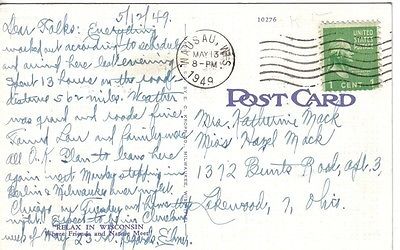 5/12/49.
10276
Dear Folks: Everything
worked out according to schedule
and arrived here last evening
Spent 13 hours on the road
distance 502 miles. Weather
was grand and roads fine.
Found Lou and family were
all O.K. Plan to leave here
again next Monday stopping in
Berlin & Milwaukee over night
Chicago on Tuesday and home the
night. Expect to be in Cleveland
week of May 23rd. Regards, Elmer.
RELAX IN WISCONSIN
Where Friends and Nature Meet
WAUSAU, WIS.
MAY 13
8-PM
1949
UNITED
STATES
POSTAGE
1 CENT 1
POST CARD
Mrs. Katherine Mack
Miss Hazel Mack
1312 Bunts Road, apt. 3.
Lakewood, 7, Ohio.